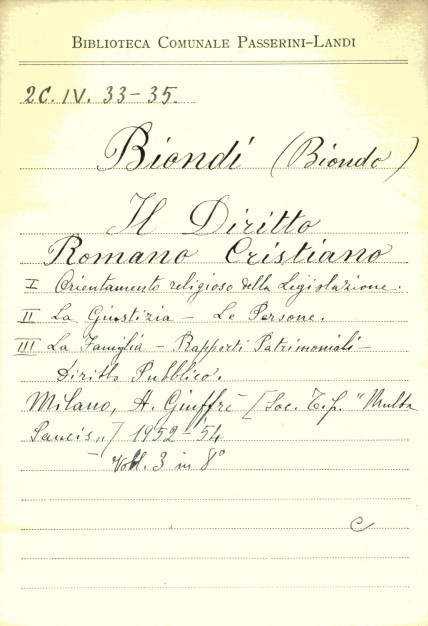 BIBLIOTECA COMUNALE PASSERINI-LANDI
2C. IV. 33-35.
Biondi (Biondo)
Il Diritto
Romano Cristiano
I Orientamento religioso della Legislazione.
II La Giustizia - Le Persone.
III La Famiglia - Rapporti Patrimoniali -
Diritto Pubblico.
Milano, A. Giuffrè [Soc. Tip. "Multa
Paucis"] 1952-'54
- Voll. 3 in 8°
C